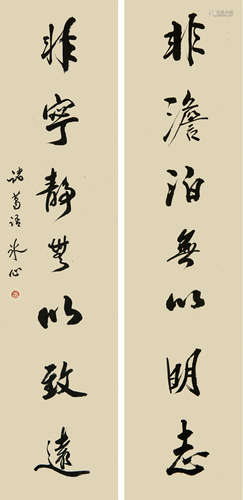 非澹泊無以明志
非寧靜無以致遠
諸葛語 冰心